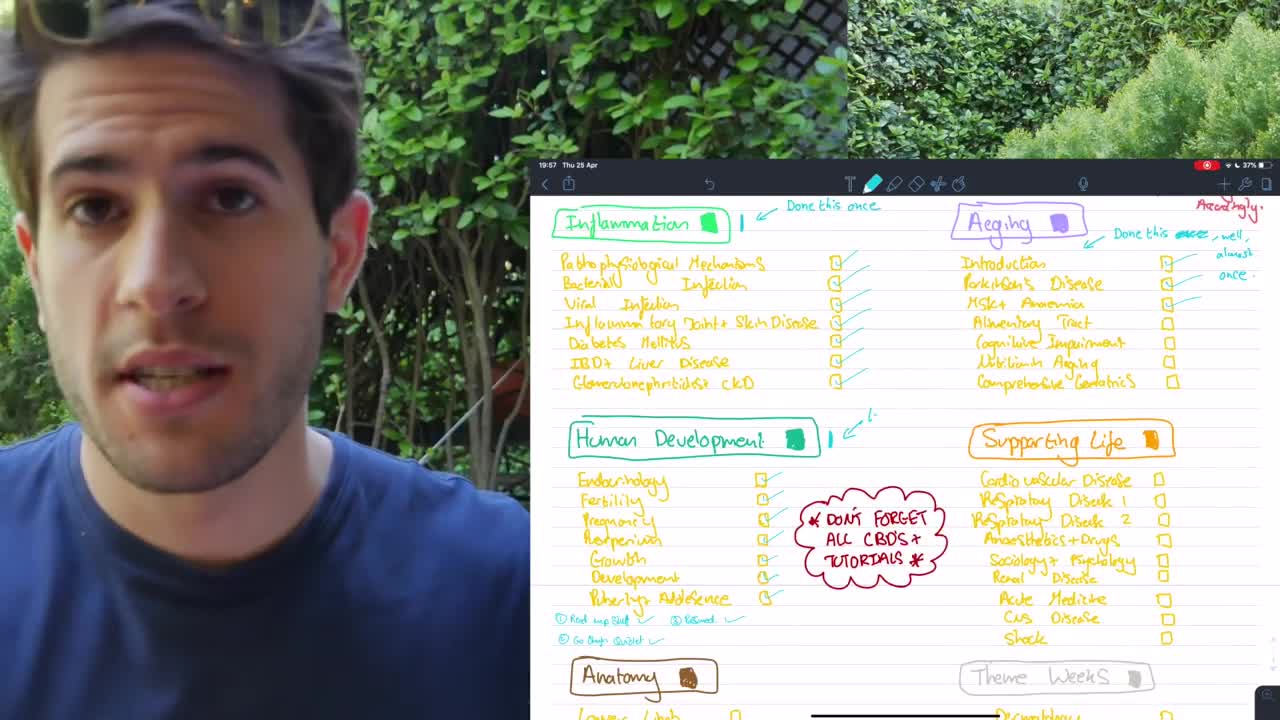 19:57 Thu 25 Apr
37%
Accordingly.
Inflammation
Done this once
Pathophysiological Mechanisms
Bacterial Infection
Viral Infection
Inflammatory Joint + Skin Disease
Diabetes Mellitus
IBD + Liver Disease
Glomerulonephritides + CKD
Aeging
Done this once, well,
almost
once.
Introduction
Parkinson's Disease
MSK + Anaemia
Alimentary Tract
Cognitive Impairment
Nutrition in Aging
Comprehensive Geriatrics
Human Development
Endocrinology
Fertility
Pregnancy
Puerperium
Growth
Development
Puberty + Adolesence
① Read up stuff
③ Rescued
② Go though Quizlet
* DON'T FORGET
ALL CBD'S +
TUTORIALS *
Supporting Life
Cardiovascular Disease
Respiratory Disease 1
Respiratory Disease 2
Anaesthetics + Drugs
Sociology + Psychology
Renal Disease
Acute Medicine
CNS Disease
Shock
Anatomy
Lower Limb
Theme Weeks
Dermatology